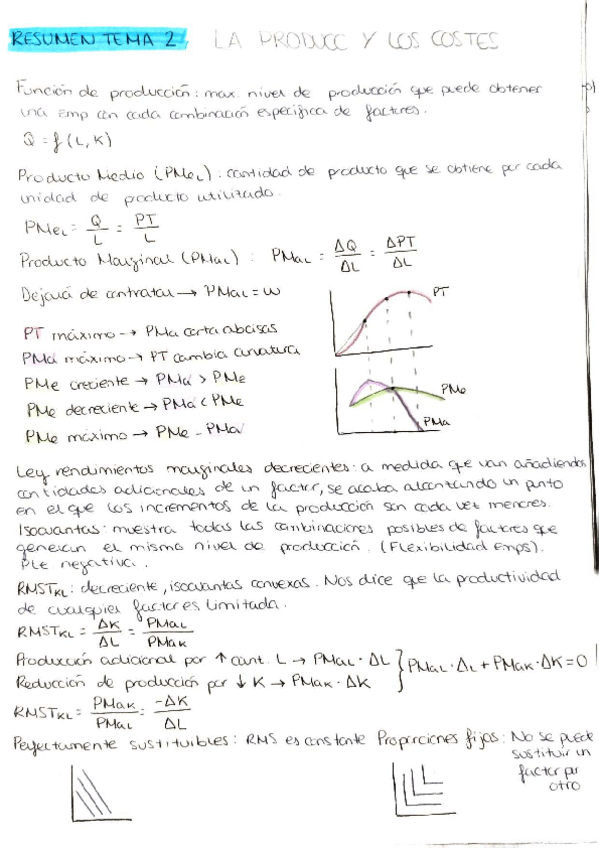 RESUMEN TEMA 2: LA PRODUCC Y LOS COSTES
Función de producción: max. nivel de producción que puede obtener
una emp con cada combinación específica de factores.
Q = f (L, K)
Producto Medio (PMeL): cantidad de producto que se obtiene por cada
unidad de producto utilizado.
PMeL = Q/L = PT/L
Producto Marginal (PMaL): PMaL = ΔQ/ΔL = ΔPT/ΔL
Dejará de contratar → PMaL = w
PT máximo → PMa corta abcisas
PMa máximo → PT cambia curvatura
PMe creciente → PMa > PMe
PMe decreciente → PMa < PMe
PMe máximo → PMe = PMa
PT
PMe
PMa
Ley rendimientos marginales decrecientes: a medida que van añadiendo
cantidades adicionales de un factor, se acaba alcanzando un punto
en el que los incrementos de la producción son cada vez menores.
Isocuantas: muestra todas las combinaciones posibles de factores que
generan el mismo nivel de producción. (Flexibilidad emps).
Pte negativa.
RMSTKL: decreciente, isocuantas convexas. Nos dice que la productividad
de cualquier factor es limitada.
RMSTKL = ΔK/ΔL = PMaL/PMaK
Producción adicional por ↑ cant. L → PMaL · ΔL
Reducción de producción por ↓ K → PMaK · ΔK
} PMaL · ΔL + PMaK · ΔK = 0
RMSTKL = PMaK/PMaL = -ΔK/ΔL
Perfectamente sustituibles: RMS es constante
Proporciones fijas: No se puede
sustituir un
factor por
otro